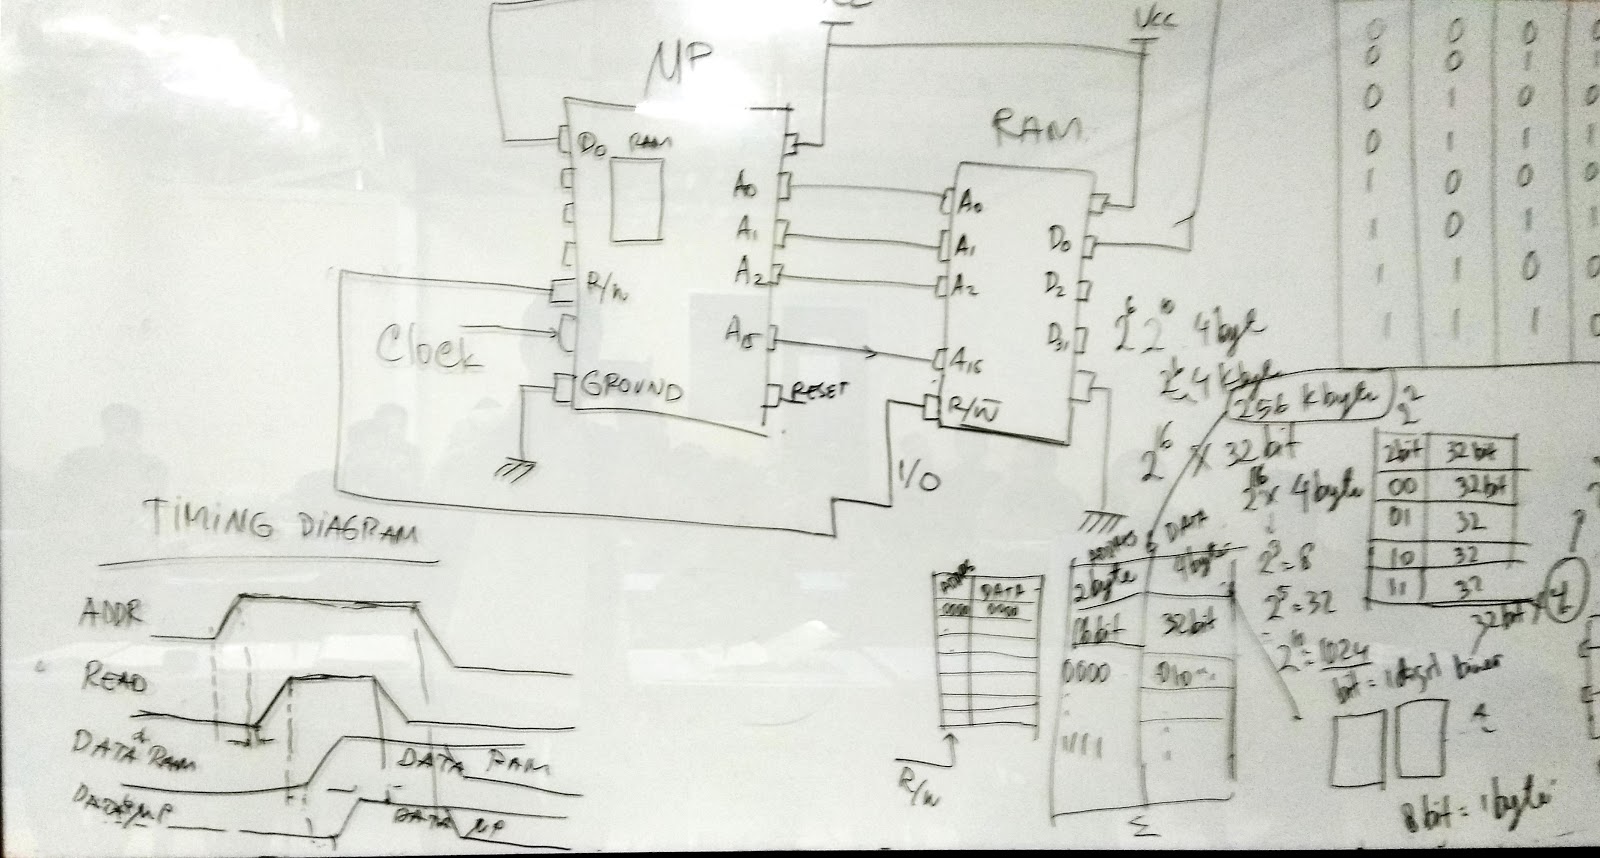 Vcc
μP
RAM
D0 RAM
A0
A1
A2
A15
R/W
Clock
GROUND
RESET
A0
A1
A2
A15
R/W
D0
D2
D31
I/O
0 0 0 0
0 0 1 0
0 1 0 0
0 1 1 1
1 0 0 0
1 0 1 1
1 1 0 0
1 1 1 0
2^6 2^10 4byte
2^6 4 kbyte
256 kbyte 2^2
2^6 x 32bit
2^16 x 4byte
2^3 = 8
2^5 = 32
2^10 = 1024
2bit 32bit
00 32bit
01 32
10 32
11 32
32bit x 4
8bit = 1byte
TIMING DIAGRAM
ADDR
READ
DATA RAM
DATA RAM
DATA μP
DATA μP
DATA
0000 0000
R/W
DATA
2byte 4byte
16bit 32bit
0000 010
1111